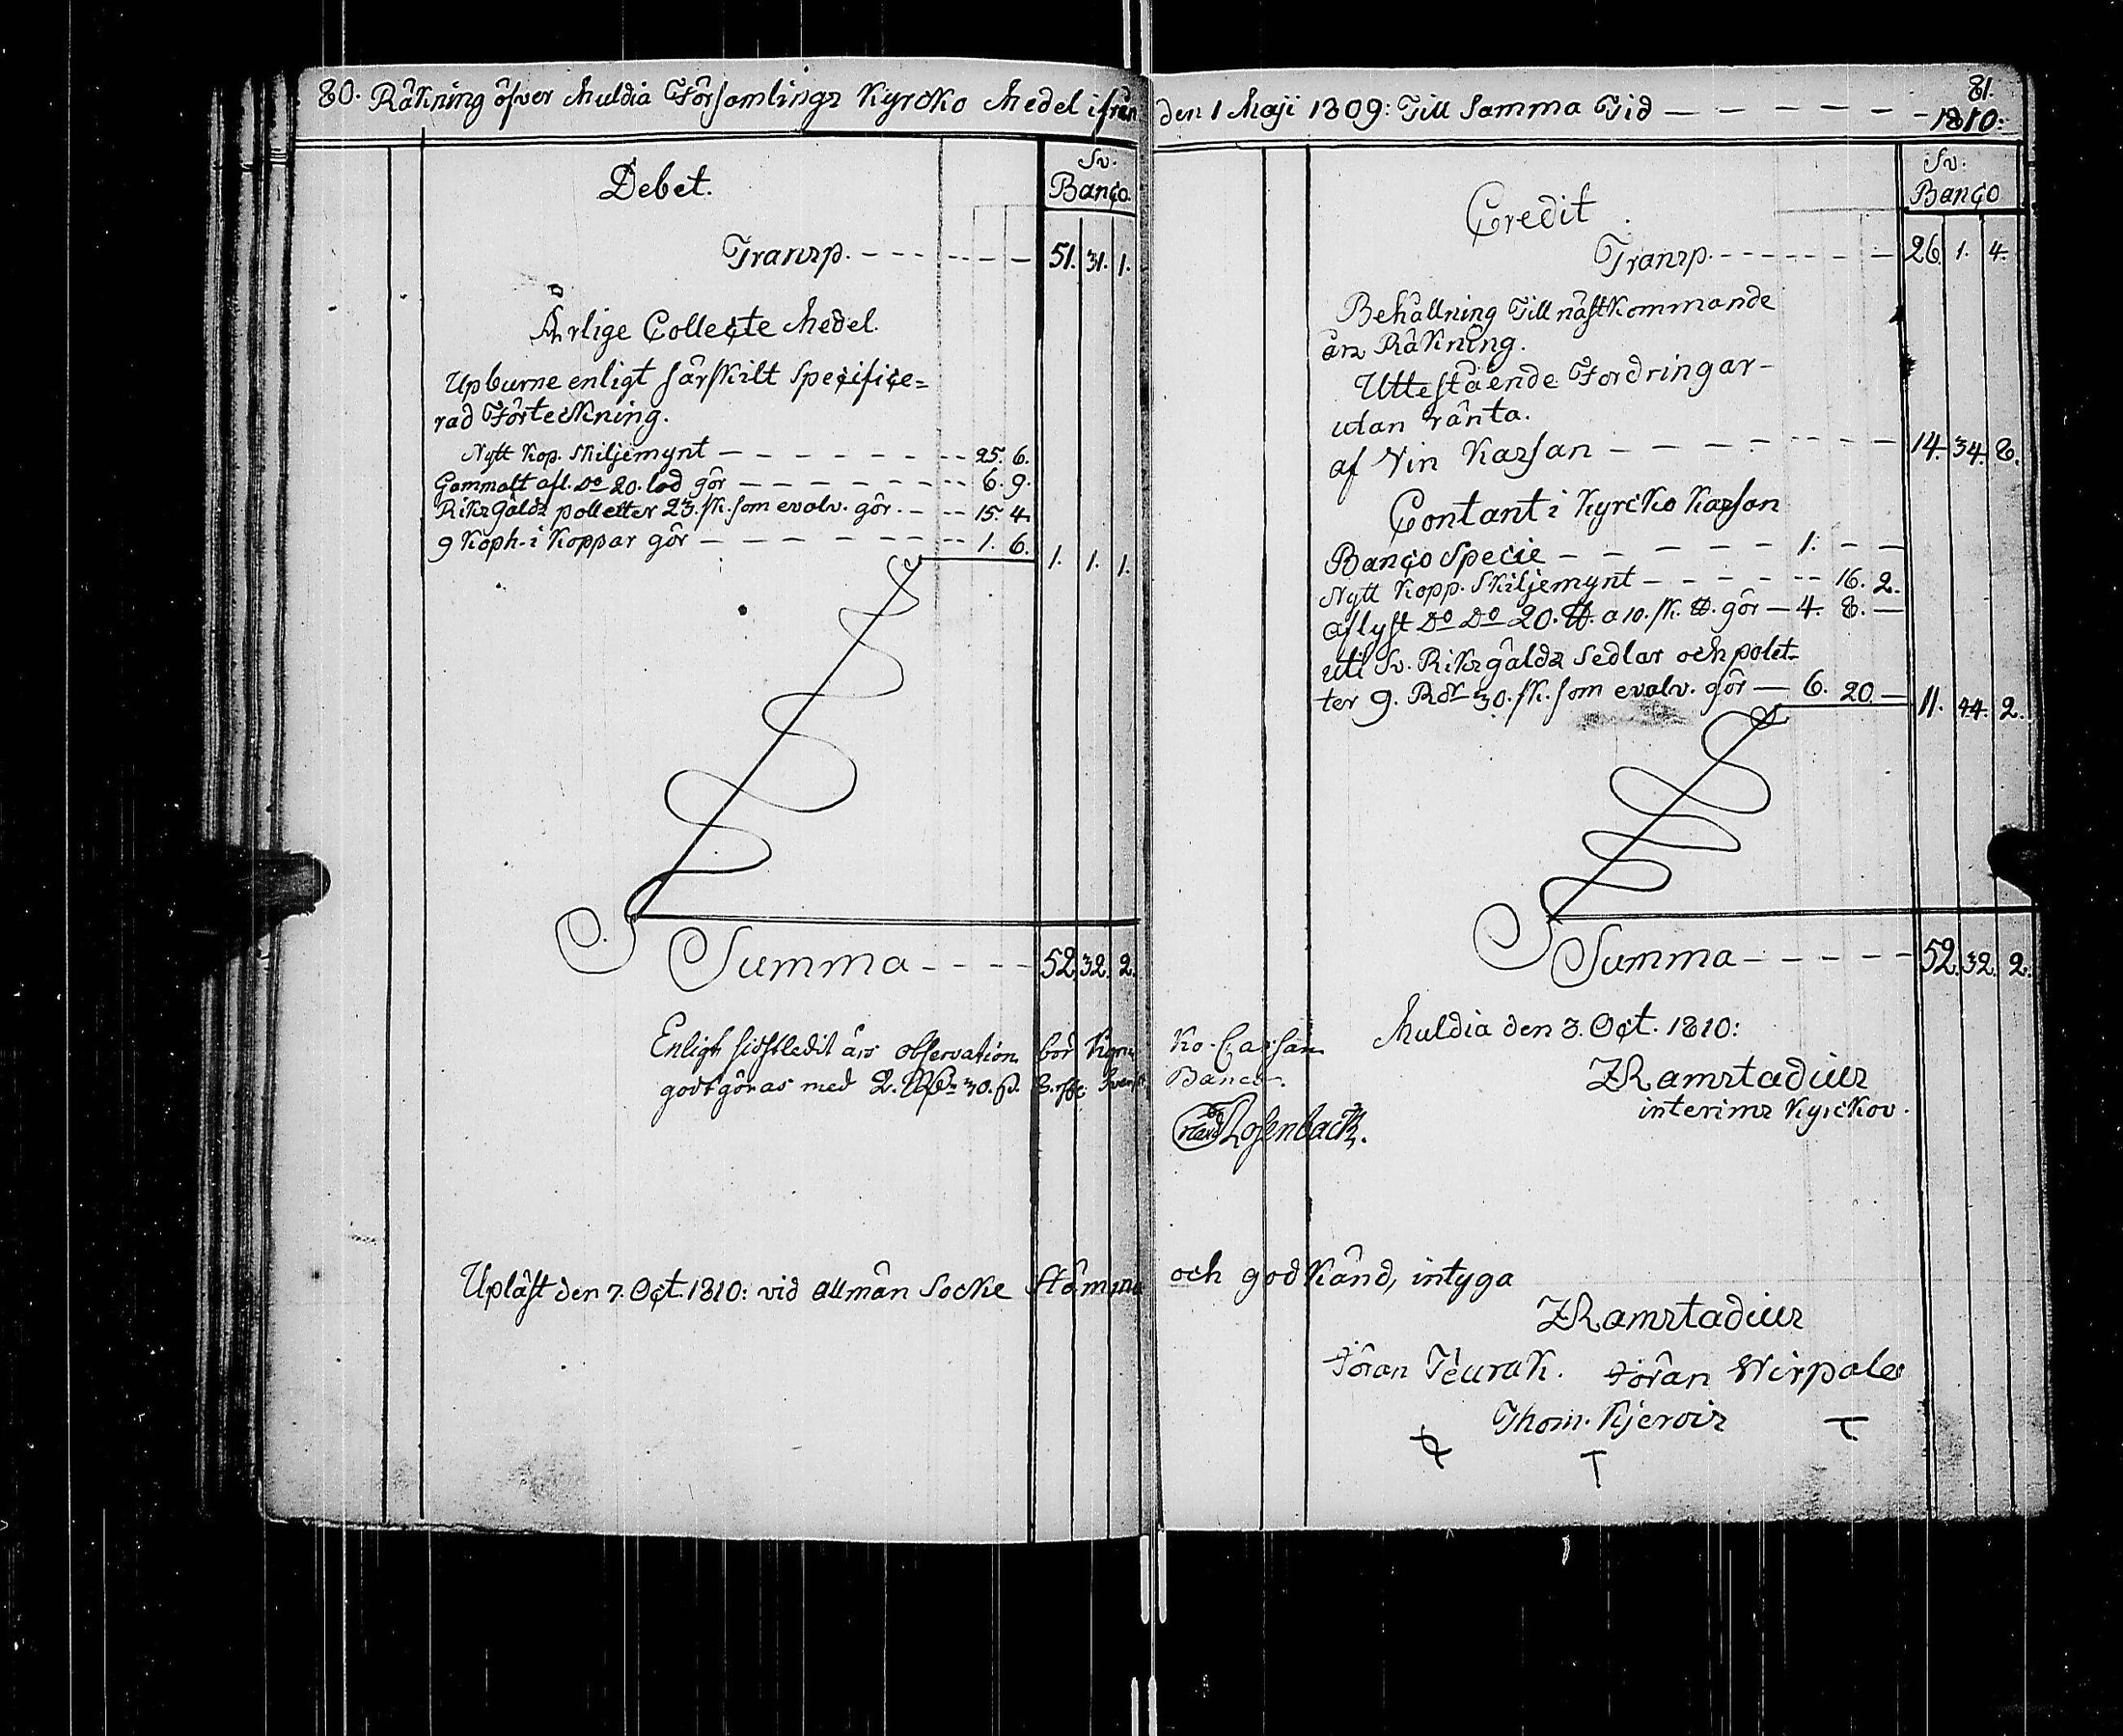 80. Räkning öfver Muldia Församlings Kyrcko Medel ifrån
Debet.
Sv.
Banço.
Transp. - - - - - - 51. 31. 1.
Årlige Colleçte Medel.
Upburne enligt särskilt Speçifiçe=
rad Förteckning.
Nytt Kop. Skiljemynt - - - - - - - - 25. 6.
Gammalt afl. Do 20. lod gör - - - - - - - 6. 9.
Riksgälds polletter 23. sk. som evalv. gör. - - 15. 4.
9 Koph. i Koppar gör - - - - - - - 1. 6. 1. 1. 1.
Summa - - - - 52. 32. 2.
Enligt sidstledit års observation bör Kyrc
godtgöras med 2. 30. 8.
Upläst den 7. Oçt. 1810: vid allmän Socke Stämma
81.
den 1 Maji 1809: Till Samma Tid - - - - - - 1810:
Credit
Sv.
Banço
Transp. - - - - - - 26. 1. 4.
Behållning Till nästkommande
års Räkning.
Uttestående Fordringar -
utan ränta.
af Vin Kassan - - - - - - 14. 34. 8.
Contant i Kyrcko Kassan
Banço Specie - - - - - 1. - -
Nytt Kopp. Skiljemynt - - - - - - 16. 2.
aflyst Do Do 20. ℔. a 10. sk. ℔. gör - 4. 8. -
uti Sv. Riksgälds Sedlar och polet-
ter 9. Rdr 30. sk. som evalv. gör - 6. 20. - 11. 44. 2.
Summa - - - - - 52. 32. 2.
Muldia den 3. Oçt. 1810:
ZRamstadius
interims Kyrckov.
Ko-Cassan
Banco.
Losenback.
och godkänd, intyga
ZRamstadius
Jöran Teurak. Jöran Wirpale
Thom. Kjerois